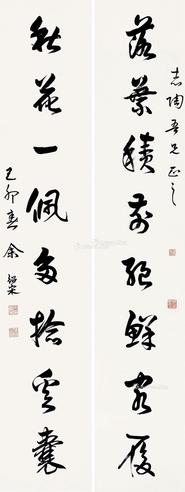 志陶吾兄正之
落葉積前絕鮮客履
秋花一佩多拾奚囊
己卯春余紹宋